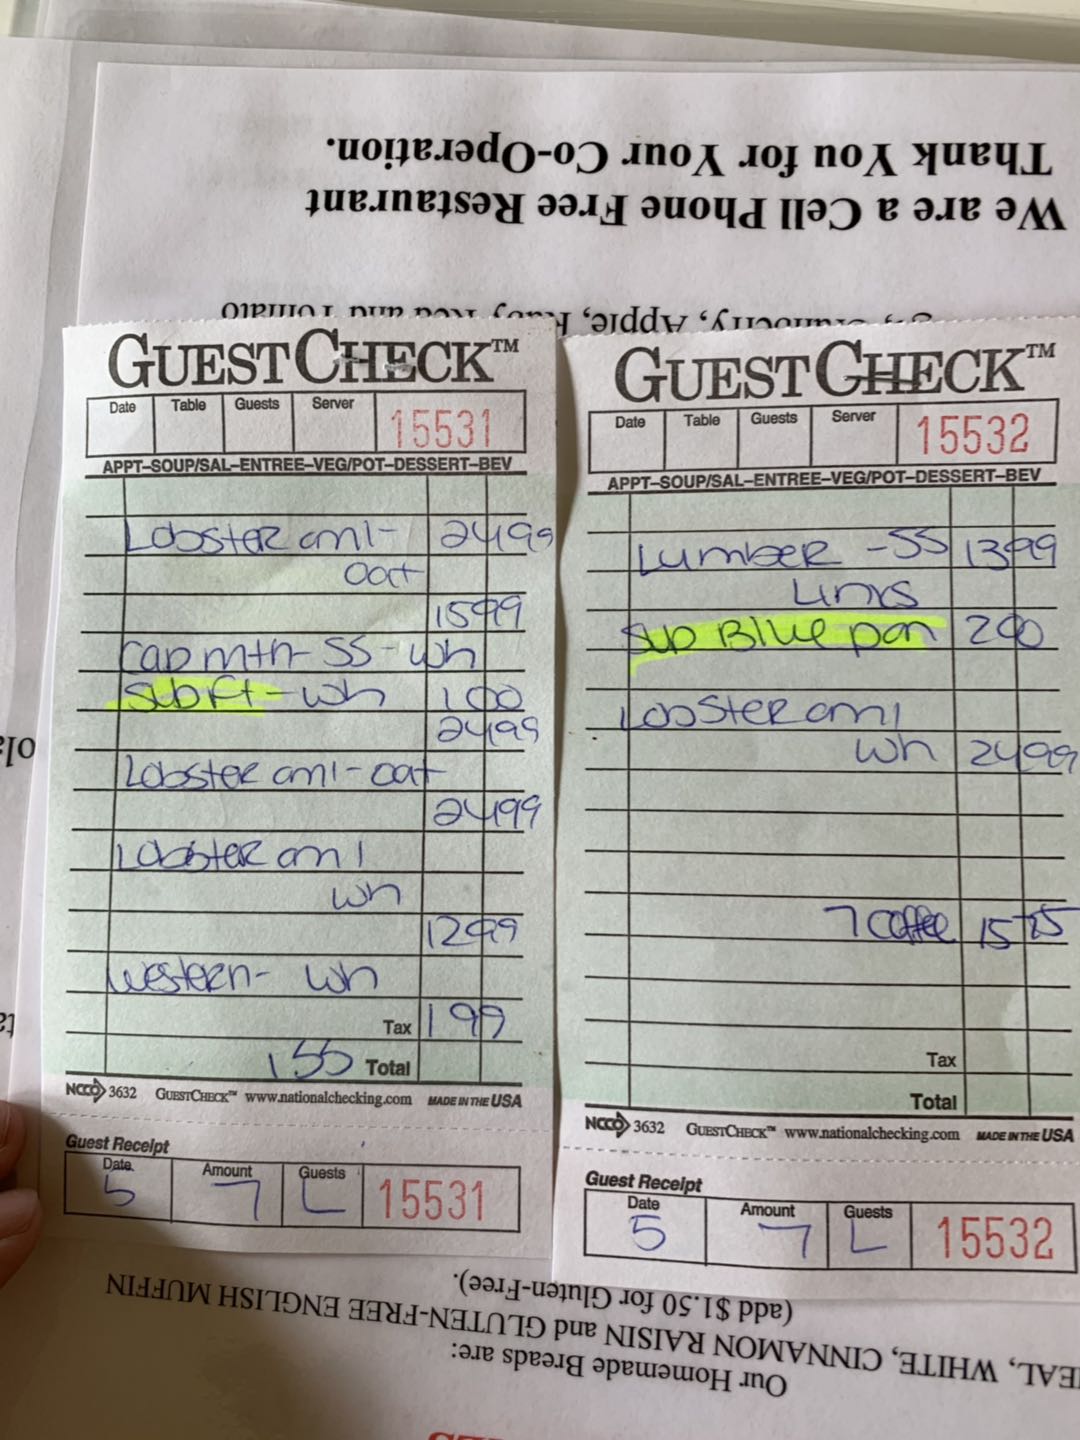 We are a Cell Phone Free Restaurant
Thank You for Your Co-Operation.
Cranberry, Apple, Ruby Red and Tomato
GUESTCHECK™
Date Table Guests Server 15531
APPT–SOUP/SAL–ENTREE–VEG/POT–DESSERT–BEV
Lobster oml- 2499
oat
1599
cap mtn- SS - wh
Sub Ft - wh 100
2499
Lobster oml - oat
2499
Lobster oml
wh
1299
western- wh
Tax 199
155 Total
NCCO 3632 GUESTCHECK™ www.nationalchecking.com MADE IN THE USA
Guest Receipt
Date Amount Guests 15531
5 7 L
GUESTCHECK™
Date Table Guests Server 15532
APPT–SOUP/SAL–ENTREE–VEG/POT–DESSERT–BEV
Lumber -SS 1399
Links
Sup Blue pan 200
Lobster oml
wh 2499
7 Coffee 15
Tax
Total
NCCO 3632 GUESTCHECK™ www.nationalchecking.com MADE IN THE USA
Guest Receipt
Date Amount Guests 15532
5 7 L
Our Homemade Breads are:
WHITE, CINNAMON RAISIN and GLUTEN-FREE ENGLISH MUFFIN
(add $1.50 for Gluten-Free).